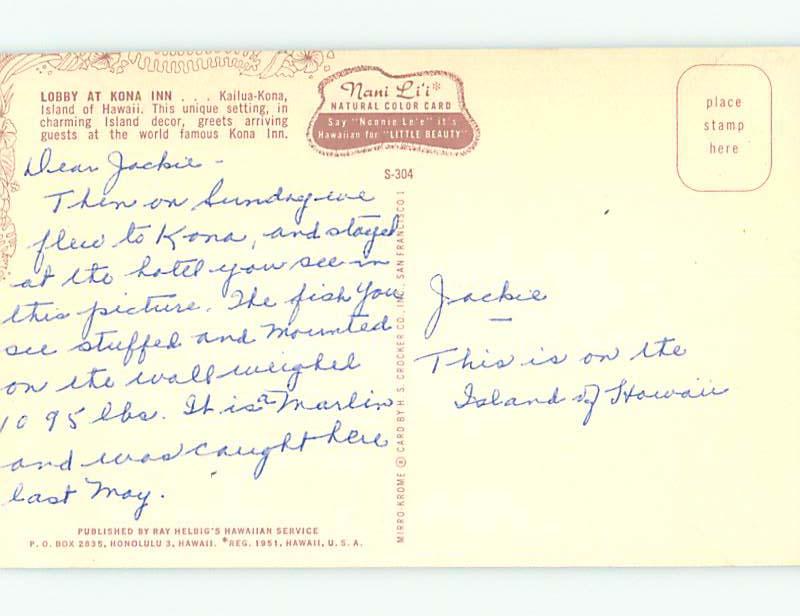 LOBBY AT KONA INN . . . Kailua-Kona,
Island of Hawaii. This unique setting, in
charming Island decor, greets arriving
guests at the world famous Kona Inn.
Nani Li'i*
NATURAL COLOR CARD
Say "Nconie Le'e" it's
Hawaiian for "LITTLE BEAUTY"
S-304
place
stamp
here
Dear Jackie -
Then on Sunday we
flew to Kona, and stayed
at the hotel you see in
this picture. The fish you
see stuffed and mounted
on the wall weighed
1095 lbs. It is a Marlin
and was caught here
last May.
MIRRO-KROME ® CARD BY H. S. CROCKER CO., INC., SAN FRANCISCO 1
Jackie
This is on the
Island of Hawaii
PUBLISHED BY RAY HELBIG'S HAWAIIAN SERVICE
P. O. BOX 2835, HONOLULU 3, HAWAII. *REG. 1951, HAWAII, U. S. A.